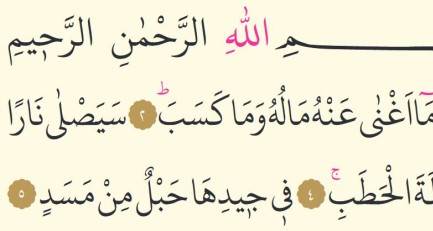 ـمِ اللهِ الرَّحْمٰنِ الرَّح۪يمِ
مَٓا اَغْنٰى عَنْهُ مَالُهُ وَمَا كَسَبَۜ ﴿٢﴾ سَيَصْلٰى نَارًا
لَةَ الْحَطَبِۚ ﴿٤﴾ ف۪ي ج۪يدِهَا حَبْلٌ مِنْ مَسَدٍ ﴿٥﴾